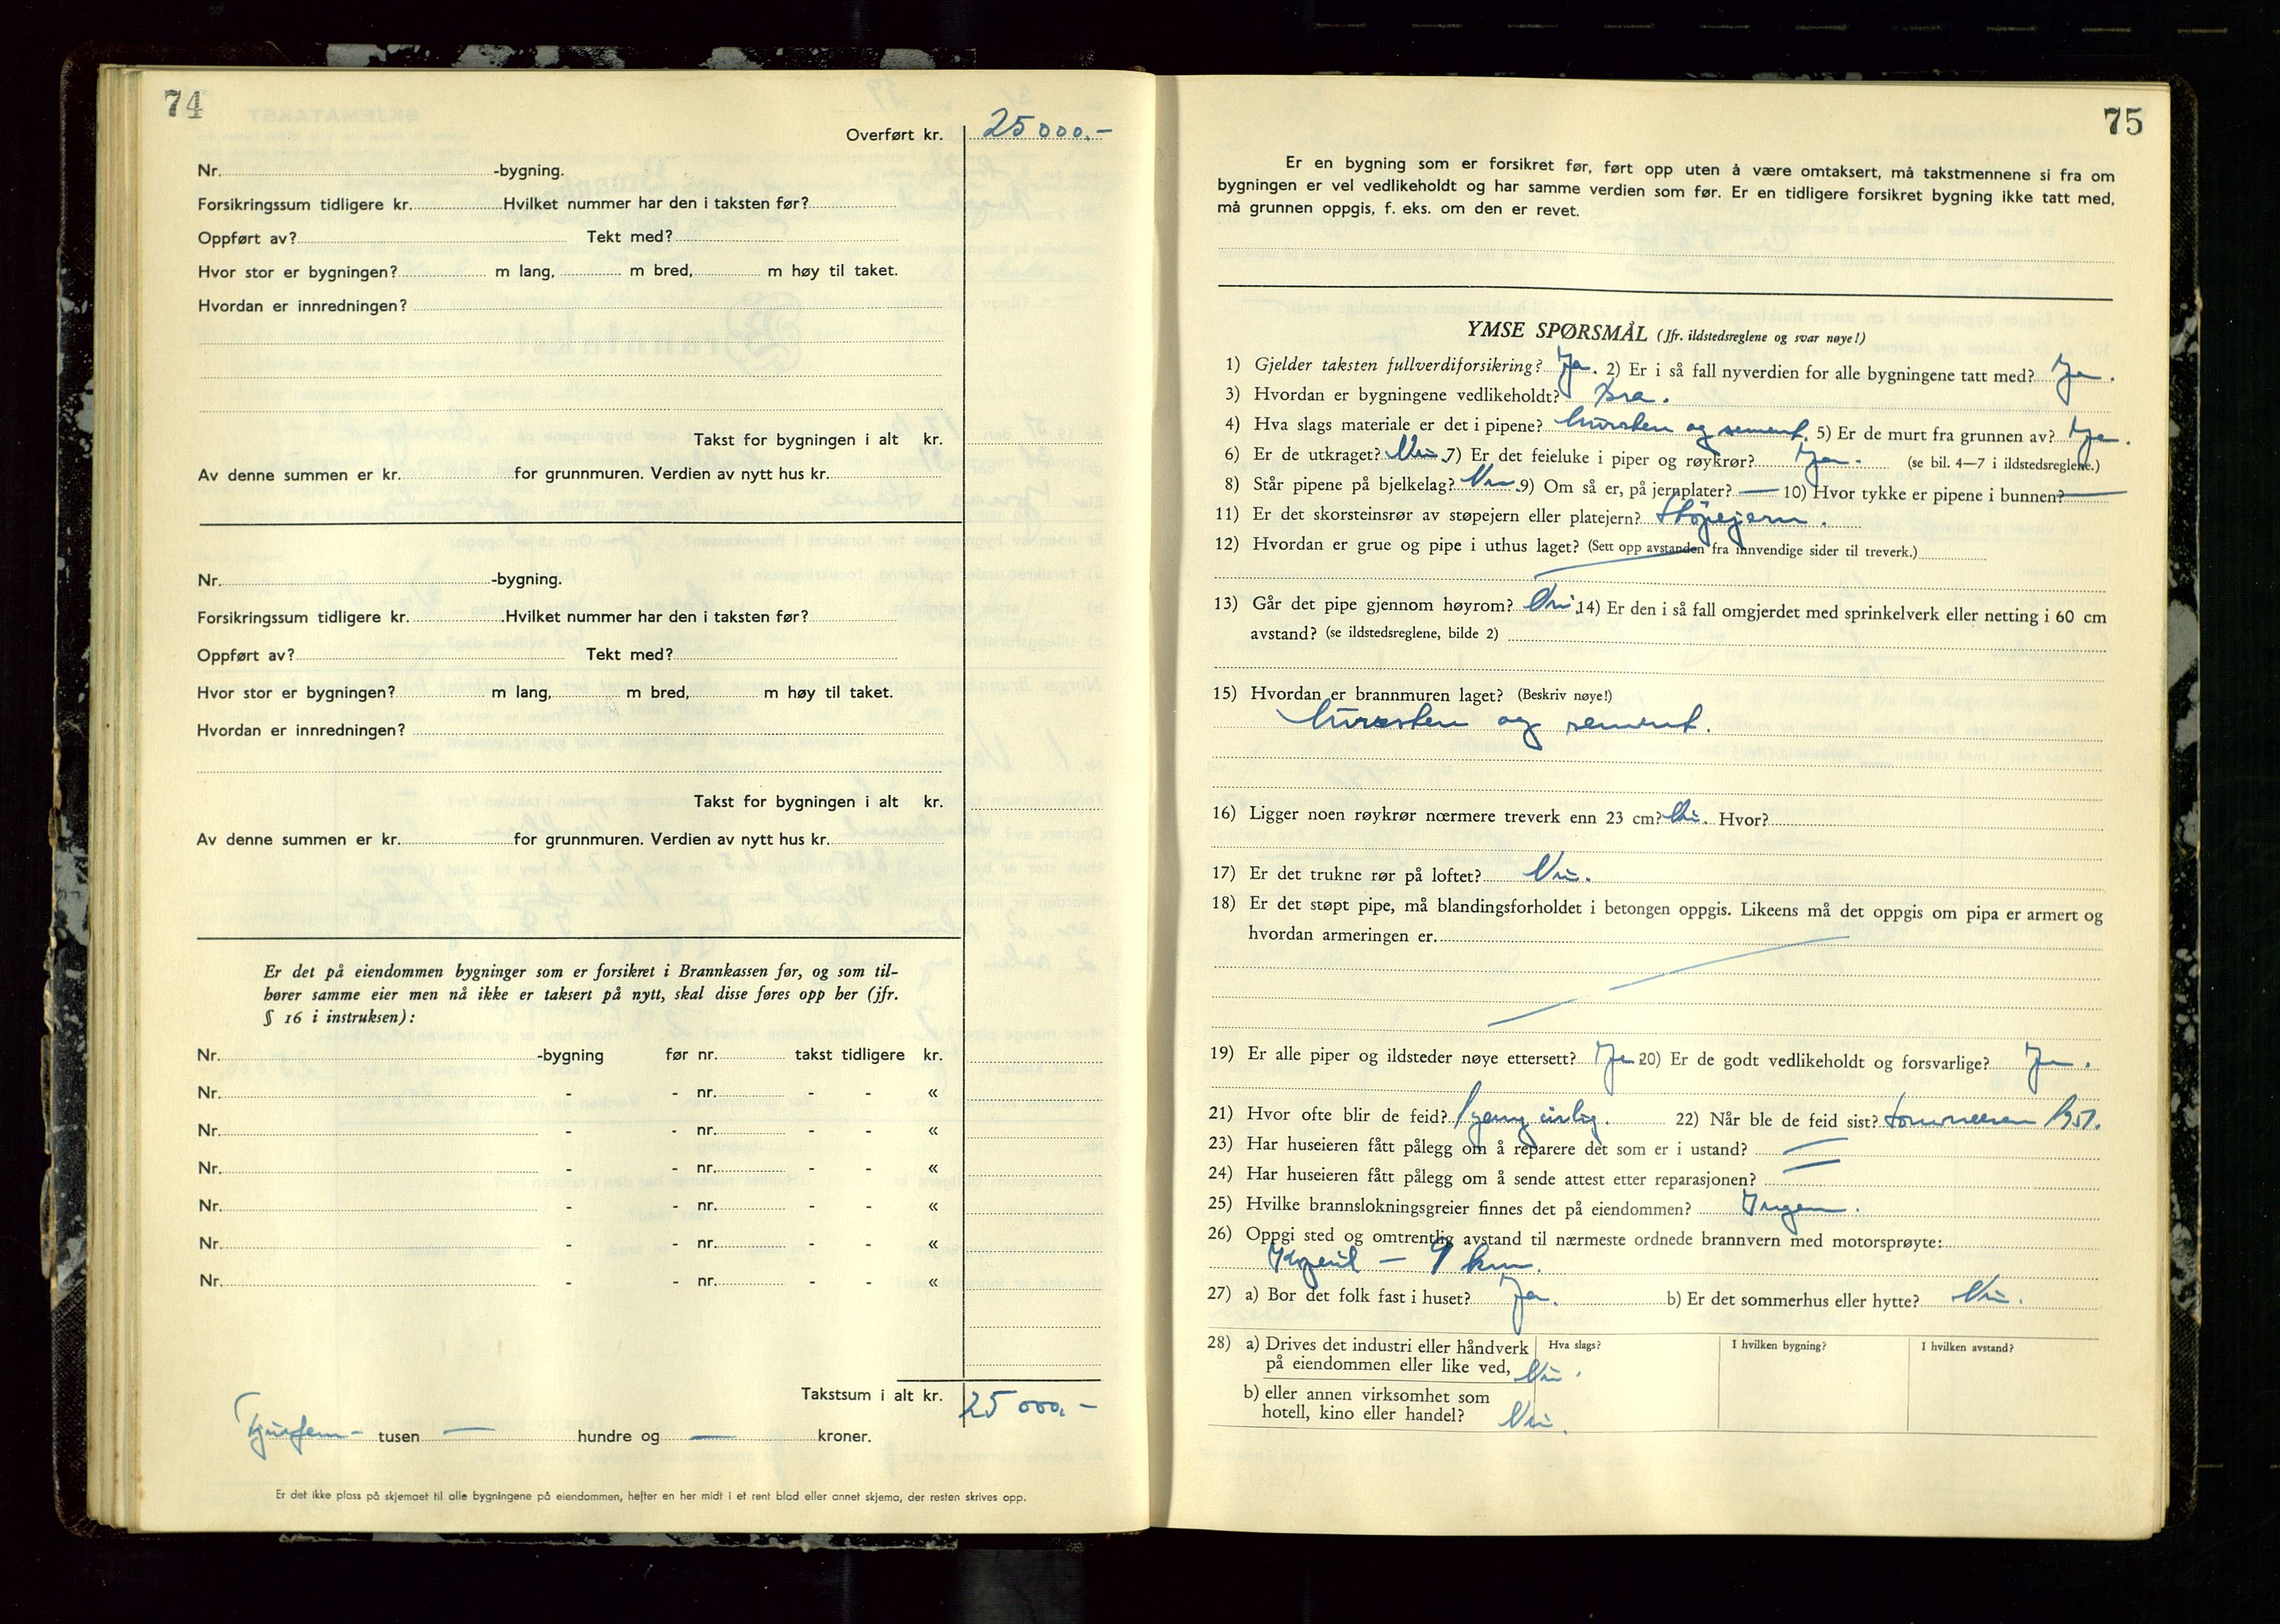 74
Overført kr. 25 000.-
Nr. -bygning.
Forsikringssum tidligere kr. Hvilket nummer har den i taksten før?
Oppført av? Tekt med?
Hvor stor er bygningen? m lang, m bred, m høy til taket.
Hvordan er innredningen?
Takst for bygningen i alt kr.
Av denne summen er kr. for grunnmuren. Verdien av nytt hus kr.
Nr. -bygning.
Forsikringssum tidligere kr. Hvilket nummer har den i taksten før?
Oppført av? Tekt med?
Hvor stor er bygningen? m lang, m bred, m høy til taket.
Hvordan er innredningen?
Takst for bygningen i alt kr.
Av denne summen er kr. for grunnmuren. Verdien av nytt hus kr.
Er det på eiendommen bygninger som er forsikret i Brannkassen før, og som til-
hører samme eier men nå ikke er taksert på nytt, skal disse føres opp her (jfr.
§ 16 i instruksen):
Nr. -bygning før nr. takst tidligere kr.
Nr. - - nr. - - «
Nr. - - nr. - - «
Nr. - - nr. - - «
Nr. - - nr. - - «
Nr. - - nr. - - «
Nr. - - nr. - - «
Takstsum i alt kr. 25 000.-
Tjuefem - tusen — hundre og — kroner.
Er det ikke plass på skjemaet til alle bygningene på eiendommen, hefter en her midt i et rent blad eller annet skjema, der resten skrives opp.
75
Er en bygning som er forsikret før, ført opp uten å være omtaksert, må takstmennene si fra om
bygningen er vel vedlikeholdt og har samme verdien som før. Er en tidligere forsikret bygning ikke tatt med,
må grunnen oppgis, f. eks. om den er revet.
YMSE SPØRSMÅL (Jfr. ildstedsreglene og svar nøye!)
1) Gjelder taksten fullverdiforsikring? Ja. 2) Er i så fall nyverdien for alle bygningene tatt med? Ja.
3) Hvordan er bygningene vedlikeholdt? Bra.
4) Hva slags materiale er det i pipene? Mursten og sement. 5) Er de murt fra grunnen av? Ja.
6) Er de utkraget? Nei. 7) Er det feieluke i piper og røykrør? Ja. (se bil. 4—7 i ildstedsreglene.)
8) Står pipene på bjelkelag? Nei. 9) Om så er, på jernplater? — 10) Hvor tykke er pipene i bunnen? —
11) Er det skorsteinsrør av støpejern eller platejern? Støpejern.
12) Hvordan er grue og pipe i uthus laget? (Sett opp avstanden fra innvendige sider til treverk.)
13) Går det pipe gjennom høyrom? Nei. 14) Er den i så fall omgjerdet med sprinkelverk eller netting i 60 cm
avstand? (se ildstedsreglene, bilde 2)
15) Hvordan er brannmuren laget? (Beskriv nøye!)
Mursten og sement.
16) Ligger noen røykrør nærmere treverk enn 23 cm? Nei. Hvor?
17) Er det trukne rør på loftet? Nei.
18) Er det støpt pipe, må blandingsforholdet i betongen oppgis. Likeens må det oppgis om pipa er armert og
hvordan armeringen er.
19) Er alle piper og ildsteder nøye ettersett? Ja 20) Er de godt vedlikeholdt og forsvarlige? Ja.
21) Hvor ofte blir de feid? 1 gang årlig. 22) Når ble de feid sist? Sommeren 1951.
23) Har huseieren fått pålegg om å reparere det som er i ustand? —
24) Har huseieren fått pålegg om å sende attest etter reparasjonen? —
25) Hvilke brannslokningsgreier finnes det på eiendommen? Ingen.
26) Oppgi sted og omtrentlig avstand til nærmeste ordnede brannvern med motorsprøyte:
— 9 km.
27) a) Bor det folk fast i huset? Ja. b) Er det sommerhus eller hytte? Nei.
28) a) Drives det industri eller håndverk Hva slags? I hvilken bygning? I hvilken avstand?
på eiendommen eller like ved, Nei.
b) eller annen virksomhet som
hotell, kino eller handel? Nei.